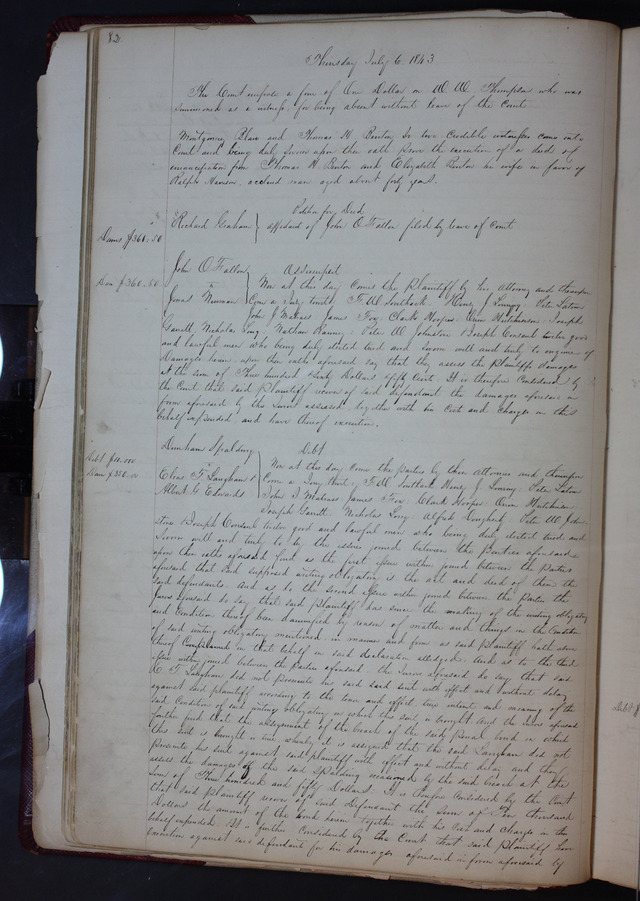 82
Thursday July 6 1843
The Court impose a fine of One Dollar on W W Thompson who was
summoned as a witness for being absent without leave of the Court
Montgomery Blair and Thomas H. Benton two credible witnesses come into
Court and being duly sworn upon their oath prove the execution of a deed of
emancipation from Thomas H Benton and Elizabeth Benton his wife in favor of
Ralph Harrison, a colored man aged about forty years.
Petition for Deed
Richard Graham } affidavit of John O Fallon filed by leave of Court
Dam $360.50
John O Fallon } Assumpsit
Dam $360.50
Now at this day comes the Plaintiff by his Attorney and thereupon
Jonas Newman } come a Jury to wit F W Southack Henry J Loring Peter
John J Matiass James Fox Clark Hooper Joseph
Nicholas Long Nathan Ranney Peter W Johnston & Joseph twelve good
and lawful men who being duly elected tried and sworn well and truly to enquire of
damages herein upon their oath aforesaid say that they assess the Plaintiffs damages
at the sum of Three hundred Sixty Dollars fifty Cents. It is therefore Considered by
the Court that said Plaintiff recover of said defendant the damages aforesaid in
form aforesaid by the Jurors assessed together with his Cost and Charges in this
behalf expended and have thereof execution.
Debt
Spalding
Debt $10.000
Dam $350.00
Now at this day come the parties by their Attornies and thereupon
Elias T Langham &
Albert G Edwards
come a Jury to wit F W Southack Henry J Loring Peter
John J Matiass James Fox Clark Hooper
Joseph Nicholas Long Alfred Peter W John
ston & Joseph twelve good and lawful men who being duly elected tried and
Sworn well and truly to try the issues joined between the Parties aforesaid
upon their oaths aforesaid find as the first issue within joined between the Parties
aforesaid that said supposed writing obligatory is the act and deed of them the
said defendants. And as to the second issue within joined between the Parties the
Jurors aforesaid do say that said Plaintiff has since the making of the writing obligatory
and Condition thereof been damnified by reason of matter and things in the Condition
of said writing obligatory mentioned in manner and form as said Plaintiff hath above
thereof Complained in that behalf in said declaration alledged. And as to the third
issue within joined between the parties aforesaid the Jurors aforesaid do say that said
E T Langham did not prosecute his said suit with effect and without delay
against said plaintiff according to the tenor and effect, true intent and meaning of the
said Condition of said writing obligatory on which this suit is brought And the Jurors aforesaid
further find that the assignment of the breach of the said Penal bond in which
this suit is brought is true wherein it is assigned that the said Langham did not
prosecute his suit against said plaintiff with effect and without delay and they
assess the damages of the said Spalding occasioned by the said breach at the
Sum of Three hundred and fifty Dollars. It is therefore Considered by the Court
that said plaintiff recover of said Defendants the Sum of Ten thousand
Dollars the amount of the bond herein together with his Cost and Charges in this
behalf expended. It is further Considered by the Court that said Plaintiff have
execution against said defendants for his damages aforesaid in form aforesaid by
Debt $